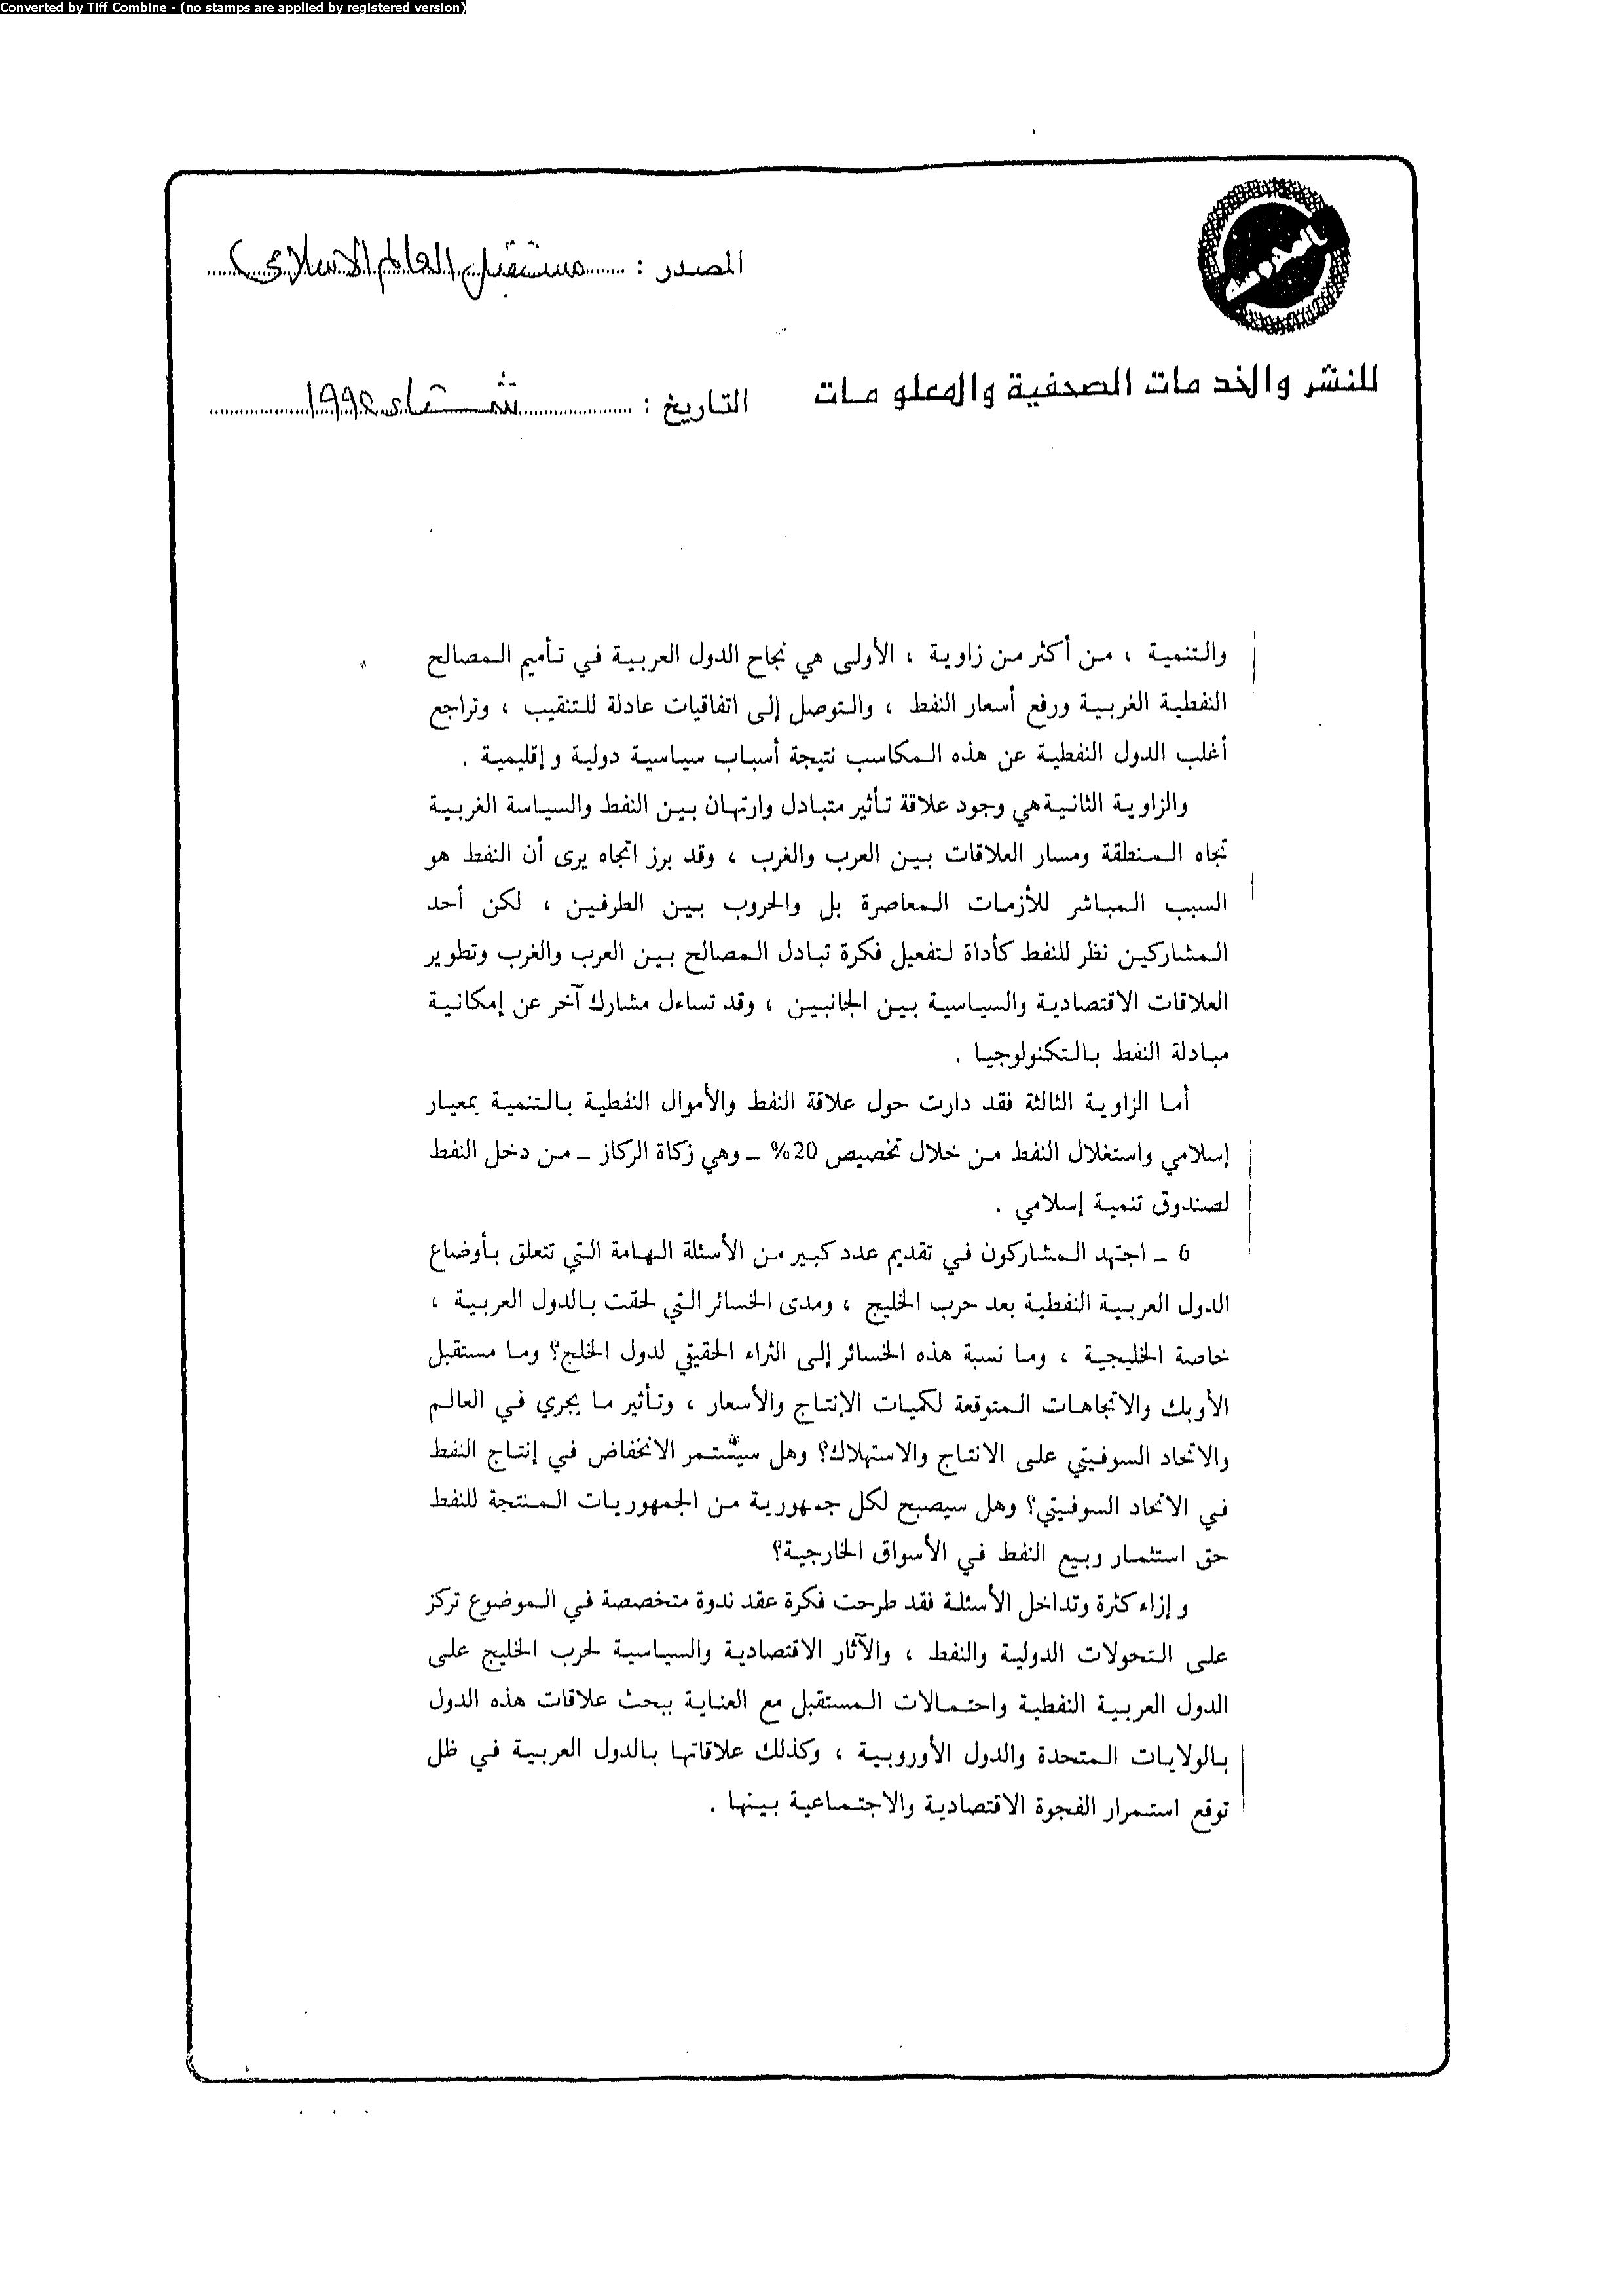 Converted by Tiff Combine - (no stamps are applied by registered version)
المحروسة
المصدر : مستقبل العالم الاسلامي
للنشر والخدمات الصحفية والمعلومات
التاريخ : شتاء ١٩٩٢
والتنمية ، من أكثر من زاوية ، الأولى هي نجاح الدول العربية في تأميم المصالح
النفطية الغربية ورفع أسعار النفط ، والتوصل إلى اتفاقيات عادلة للتنقيب ، وتراجع
أغلب الدول النفطية عن هذه المكاسب نتيجة أسباب سياسية دولية وإقليمية .
والزاوية الثانية هي وجود علاقة تأثير متبادل وارتهان بين النفط والسياسة الغربية
تجاه المنطقة ومسار العلاقات بين العرب والغرب ، وقد برز اتجاه يرى أن النفط هو
السبب المباشر للأزمات المعاصرة بل والحروب بين الطرفين ، لكن أحد
المشاركين نظر للنفط كأداة لتفعيل فكرة تبادل المصالح بين العرب والغرب وتطوير
العلاقات الاقتصادية والسياسية بين الجانبين ، وقد تساءل مشارك آخر عن إمكانية
مبادلة النفط بالتكنولوجيا .
أما الزاوية الثالثة فقد دارت حول علاقة النفط والأموال النفطية بالتنمية بمعيار
إسلامي واستغلال النفط من خلال تخصيص 20% ــ وهي زكاة الركاز ــ من دخل النفط
لصندوق تنمية إسلامي .
6 ــ اجتهد المشاركون في تقديم عدد كبير من الأسئلة الهامة التي تتعلق بأوضاع
الدول العربية النفطية بعد حرب الخليج ، ومدى الخسائر التي لحقت بالدول العربية ،
خاصة الخليجية ، وما نسبة هذه الخسائر إلى الثراء الحقيقي لدول الخلج؟ وما مستقبل
الأوبك والاتجاهات المتوقعة لكميات الإنتاج والأسعار ، وتأثير ما يجري في العالم
والاتحاد السوفيتي على الانتاج والاستهلاك؟ وهل سيستمر الانخفاض في إنتاج النفط
في الاتحاد السوفيتي؟ وهل سيصبح لكل جمهورية من الجمهوريات المنتجة للنفط
حق استثمار وبيع النفط في الأسواق الخارجية؟
وإزاء كثرة وتداخل الأسئلة فقد طرحت فكرة عقد ندوة متخصصة في الموضوع تركز
على التحولات الدولية والنفط ، والآثار الاقتصادية والسياسية لحرب الخليج على
الدول العربية النفطية واحتمالات المستقبل مع العناية ببحث علاقات هذه الدول
بالولايات المتحدة والدول الأوروبية ، وكذلك علاقاتها بالدول العربية في ظل
توقع استمرار الفجوة الاقتصادية والاجتماعية بينها .